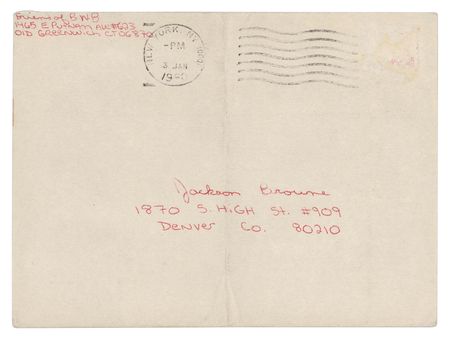 Friends of BWB
1465 E Putnam Ave #633
Old Greenwich CT 06870
NEW YORK, NY
-PM
3 JAN
1990
Jackson Browne
1870 S. HiGH St. #909
Denver Co. 80210